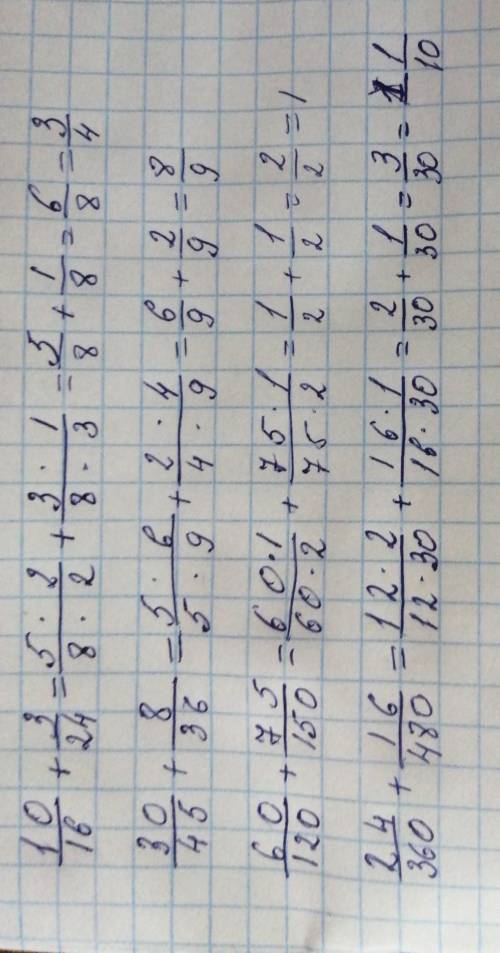 10/16 + 3/24 = 5·2/8·2 + 3·1/8·3 = 5/8 + 1/8 = 6/8 = 3/4
30/45 + 8/36 = 5·6/5·9 + 2·4/4·9 = 6/9 + 2/9 = 8/9
60/120 + 75/150 = 60·1/60·2 + 75·1/75·2 = 1/2 + 1/2 = 2/2 = 1
24/360 + 16/480 = 12·2/12·30 + 16·1/16·30 = 2/30 + 1/30 = 3/30 = 1/10